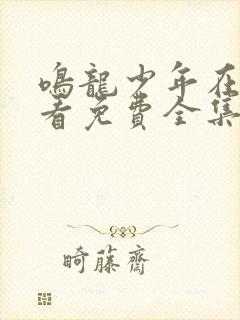 鳴龍少年在
看免費全集
畸藤齋